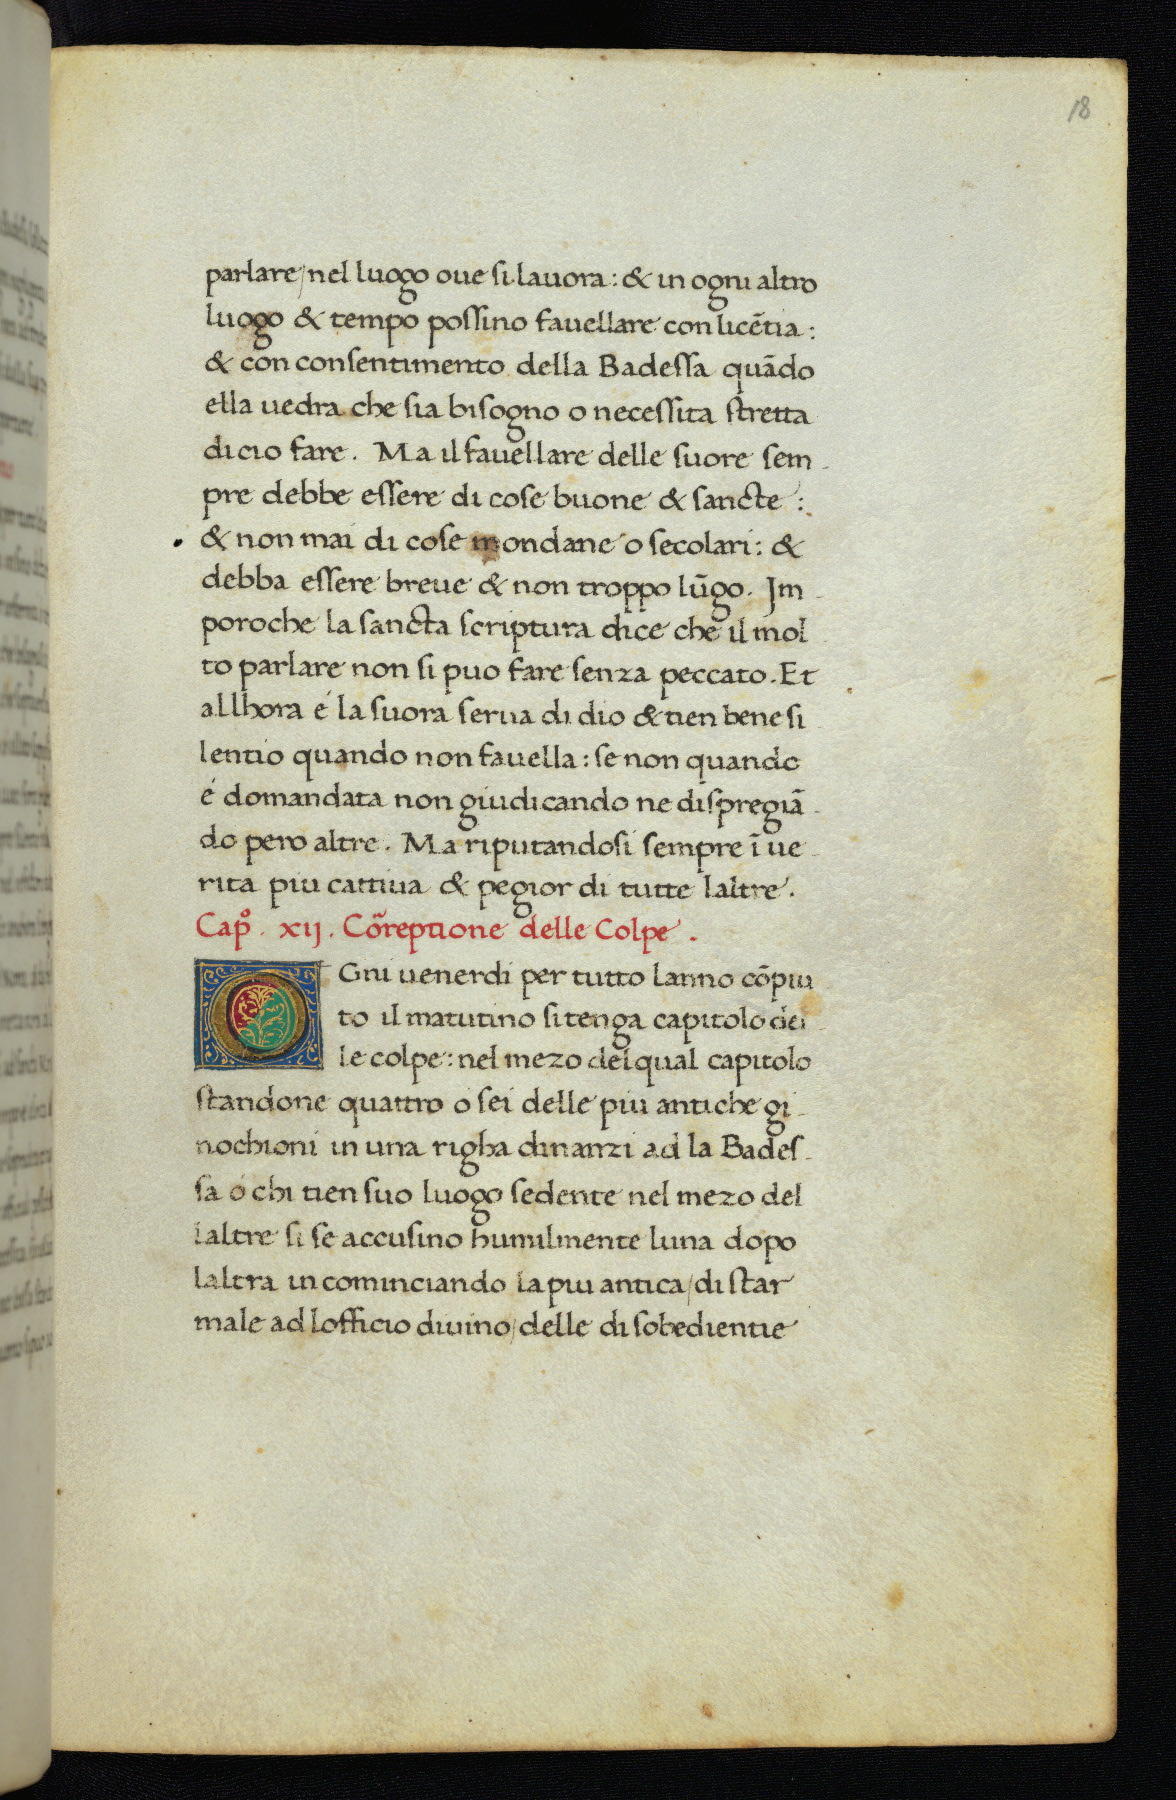 18
parlare/nel luogo oue si lauora: & in ogni altro
luogo & tempo possino fauellare con licētia:
& con consentimento della Badessa quādo
ella uedra che sia bisogno o necessita stretta
di cio fare. Ma il fauellare delle suore sem-
pre debbe essere di cose buone & sancte:
& non mai di cose mondane o secolari: &
debba essere breue & non troppo lūgo. Im-
poroche la sancta scriptura dice che il mol
to parlare non si puo fare senza peccato. Et
allhora é la suora serua di dio & tien bene si-
lentio quando non fauella: se non quando
é domandata non giudicando ne dispregiā-
do pero altre. Ma riputandosi sempre ī ue-
rita piu cattiua & pegior di tutte laltre.
Capº. xij. Cōreptione delle Colpe.
OGni uenerdi per tutto lanno cōpiu
to il matutino si tenga capitolo del-
le colpe: nel mezo del qual capitolo
standone quattro o sei delle piu antiche gi-
nochioni in una righa dinanzi ad la Bades-
sa ó chi tien suo luogo sedente nel mezo del
laltre si se accusino humilmente luna dopo
laltra incominciando la piu antica/di star
male ad lofficio diuino/delle disobedientie